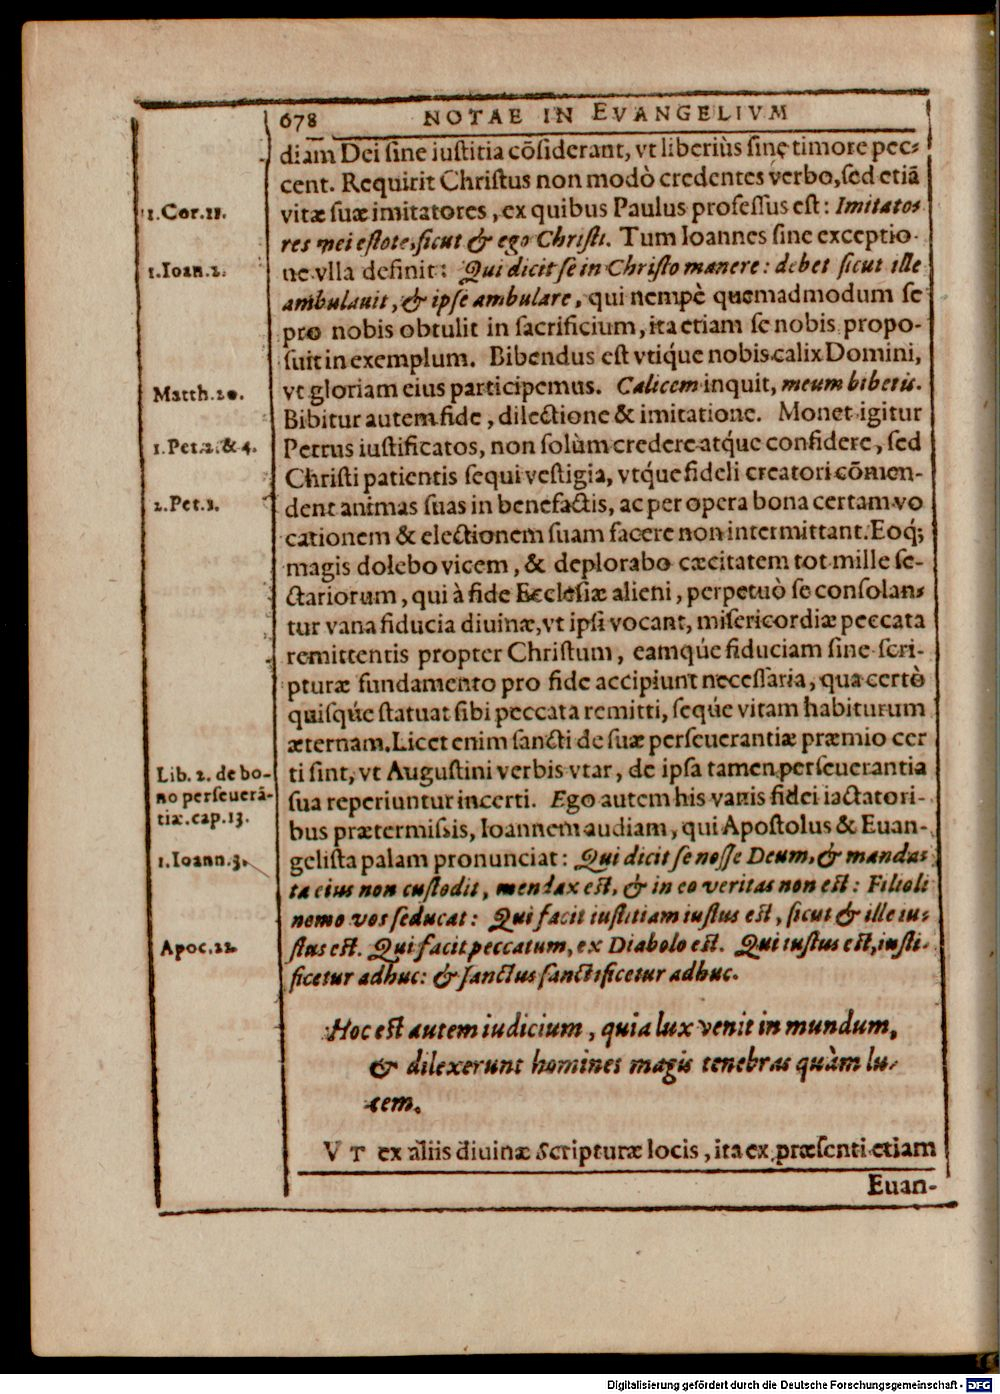 678 NOTAE IN EVANGELIVM
diam Dei sine iustitia cõsiderant, vt liberiùs sine timore pec-
cent. Requirit Christus non modò credentes verbo, sed etiã
1.Cor.11.
vitæ suæ imitatores, ex quibus Paulus professus est: Imitato-
res mei estote, sicut & ego Christi. Tum Ioannes sine exceptio
1.Ioan.2.
ne vlla definit: Qui dicit se in Christo manere: debet sicut ille
ambulauit, & ipse ambulare, qui nempè quemadmodum se
pro nobis obtulit in sacrificium, ita etiam se nobis propo-
suit in exemplum. Bibendus est vtiq́ue nobis calix Domini,
Matth.20.
vt gloriam eius participemus. Calicem inquit, meum bibetis.
Bibitur autem fide, dilectione & imitatione. Monet igitur
1.Pet.2.& 4.
Petrus iustificatos, non solùm credere atq́ue confidere, sed
Christi patientis sequi vestigia, vtq́ue fideli creatori cõmen-
2.Pet.1.
dent animas suas in benefactis, ac per opera bona certam vo
cationem & electionem suam facere non intermittant. Eoq́;
magis dolebo vicem, & deplorabo cæcitatem tot mille se-
ctariorum, qui à fide Ecclesiæ alieni, perpetuò se consolan-
tur vana fiducia diuinæ, vt ipsi vocant, misericordiæ peccata
remittentis propter Christum, eamq́ue fiduciam sine scri-
pturæ fundamento pro fide accipiunt necessaria, qua certò
quisq́ue statuat sibi peccata remitti, seq́ue vitam habiturum
æternam. Licet enim sancti de suæ perseuerantiæ præmio cer
Lib. 2. de bo-
no perseuerã-
tiæ.cap.13.
ti sint, vt Augustini verbis vtar, de ipsa tamen perseuerantia
sua reperiuntur incerti. Ego autem his vanis fidei iactatori-
bus prætermissis, Ioannem audiam, qui Apostolus & Euan-
1.Ioann.3.
gelista palam pronunciat: Qui dicit se nosse Deum, & manda-
ta eius non custodit, mendax est, & in eo veritas non est: Filioli
nemo vos seducat: Qui facit iustitiam iustus est, sicut & ille iu-
Apoc.22.
stus est. Qui facit peccatum, ex Diabolo est. Qui iustus est, iusti-
ficetur adhuc: & sanctus sanctificetur adhuc.
Hoc est autem iudicium, quia lux venit in mundum,
& dilexerunt homines magis tenebras quàm lu-
cem.
VT ex aliis diuinæ Scripturæ locis, ita ex præsenti etiam
Euan-
Digitalisierung gefördert durch die Deutsche Forschungsgemeinschaft - DFG